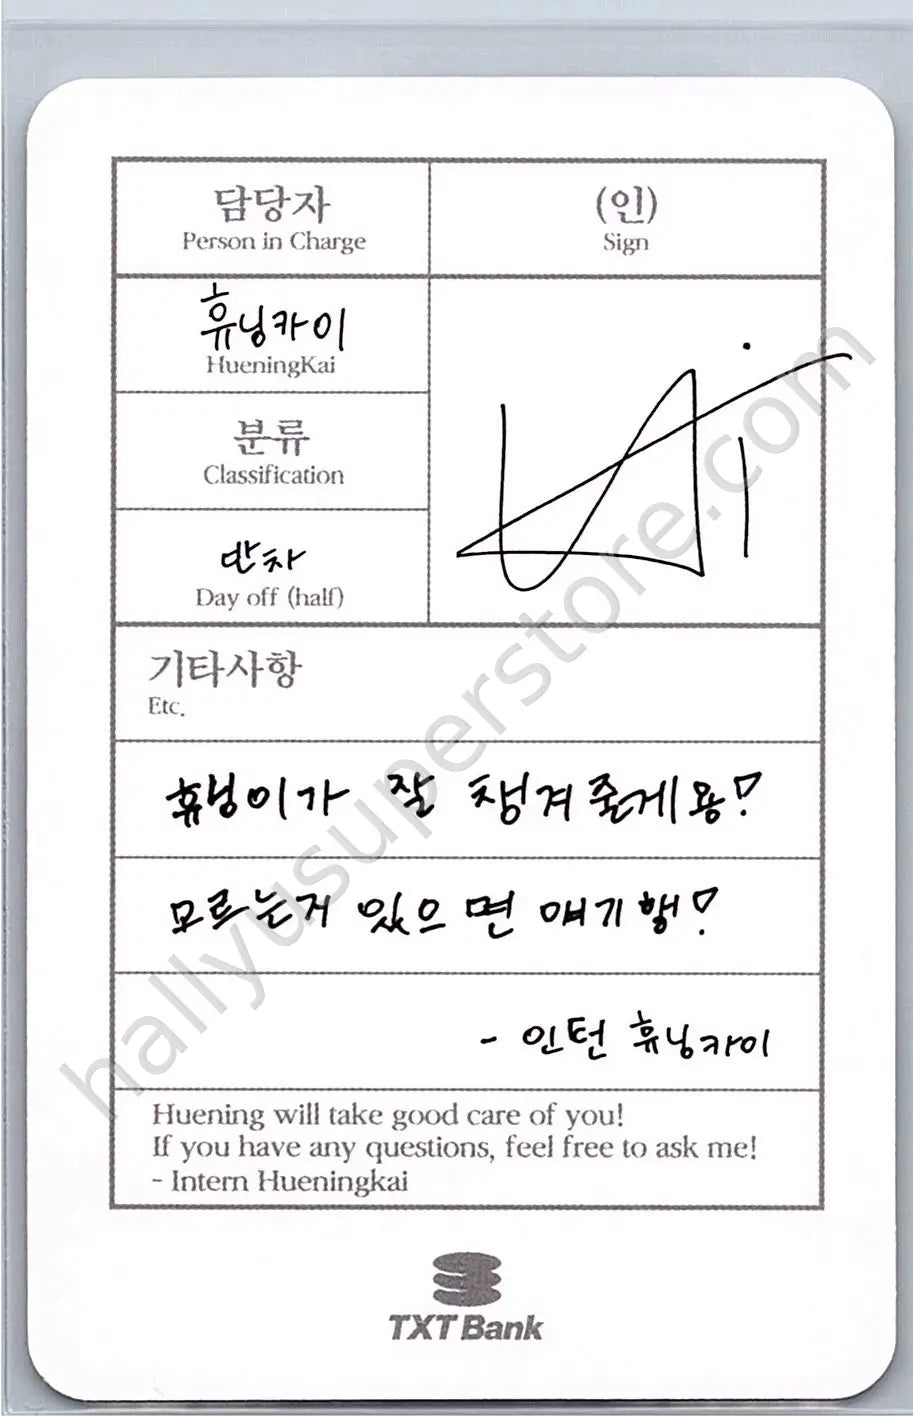 담당자
Person in Charge
(인)
Sign
휴닝카이
HueningKai
분류
Classification
반차
Day off (half)
기타사항
Etc.
휴닝이가 잘 챙겨줄게용!
모르는거 있으면 얘기행!
- 인턴 휴닝카이
Huening will take good care of you!
If you have any questions, feel free to ask me!
- Intern Hueningkai
TXT Bank
hallyusuperstore.com